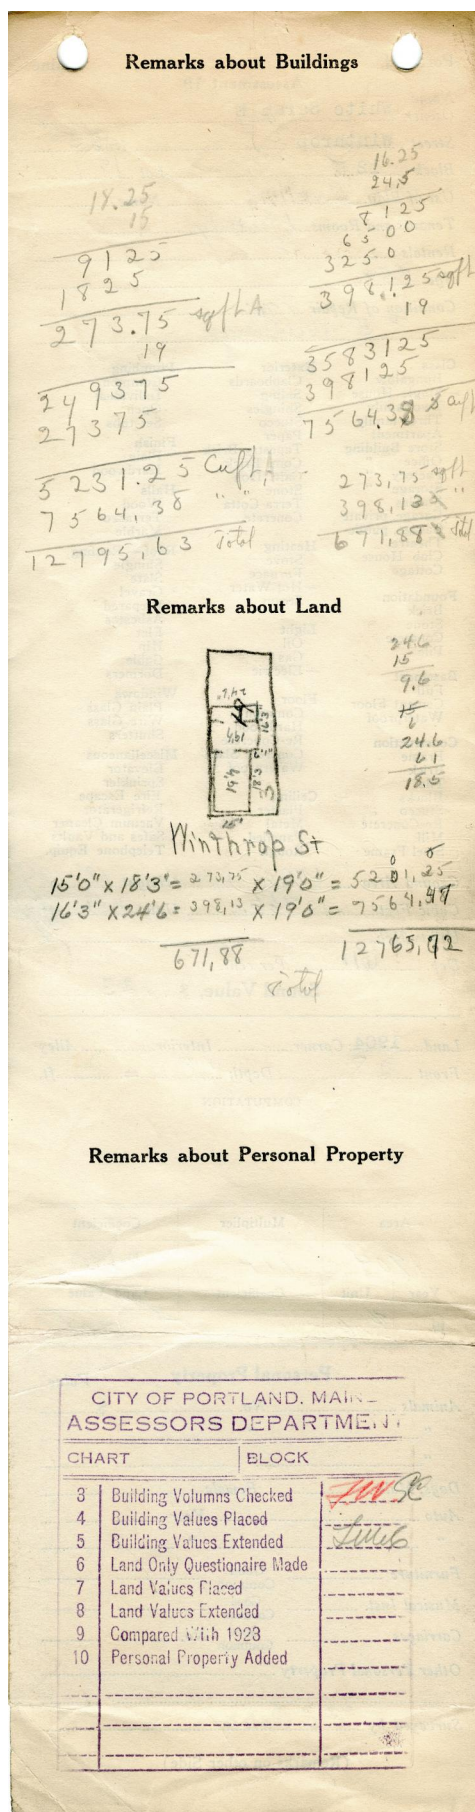 Remarks about Buildings
18.25
15
9125
1825
273.75 sqft A
19
249375
27375
5231.25 Cuft A
7564,38 " "
12795,63 Total
16.25
24,5
8125
6500
3250
398.125 sqft
19
3583125
398125
7564.38
273,75 sqft
398,13 "
671,88 Total
Remarks about Land
24.6
15
9.6
15
6
24.6
61
18.5
24'6"
19
16'3
19'6
19'4
18'3
15'
Winthrop St
15'0" X 18'3" = 273,75 X 19'0" = 5201,25
16'3" X 24'6 = 398,13 X 19'0" = 7564,47
671,88 12765,72
Total
Remarks about Personal Property
CITY OF PORTLAND. MAIN
ASSESSORS DEPARTMENT
CHART BLOCK
3 Building Volumns Checked
4 Building Values Placed
5 Building Values Extended
6 Land Only Questionaire Made
7 Land Values Placed
8 Land Values Extended
9 Compared With 1923
10 Personal Property Added